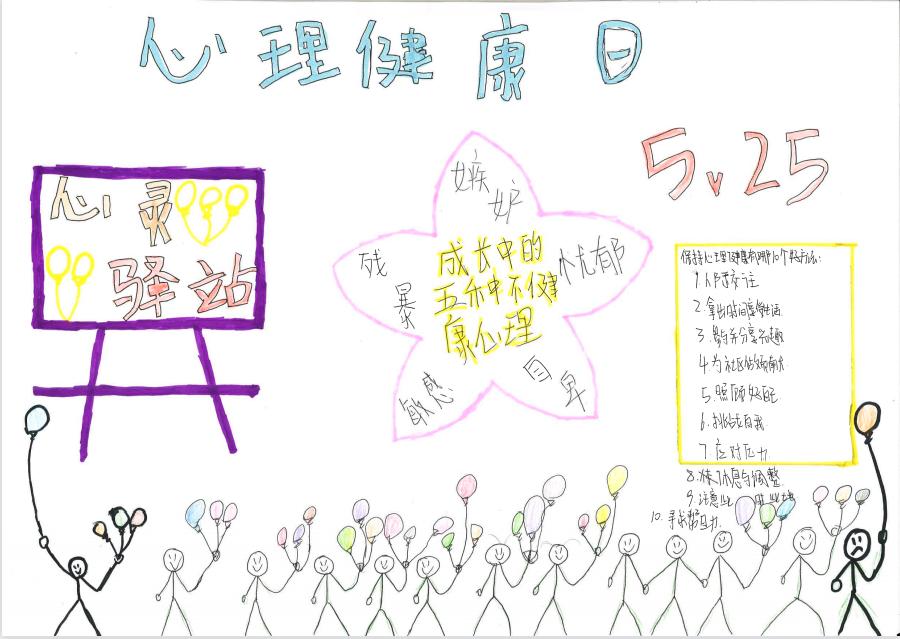 心理健康日
5.25
心灵
驿站
嫉妒
忧郁
自卑
敏感
残暴
成长中的
五种不健
康心理
保持心理健康的10个好方法:
1.人际交往
2.拿出时间享受生活
3.参与并分享兴趣
4.为社区做贡献
5.照顾好自己
6.挑战自我
7.应对压力
8.休息与调整
9.注意
10.寻求帮助